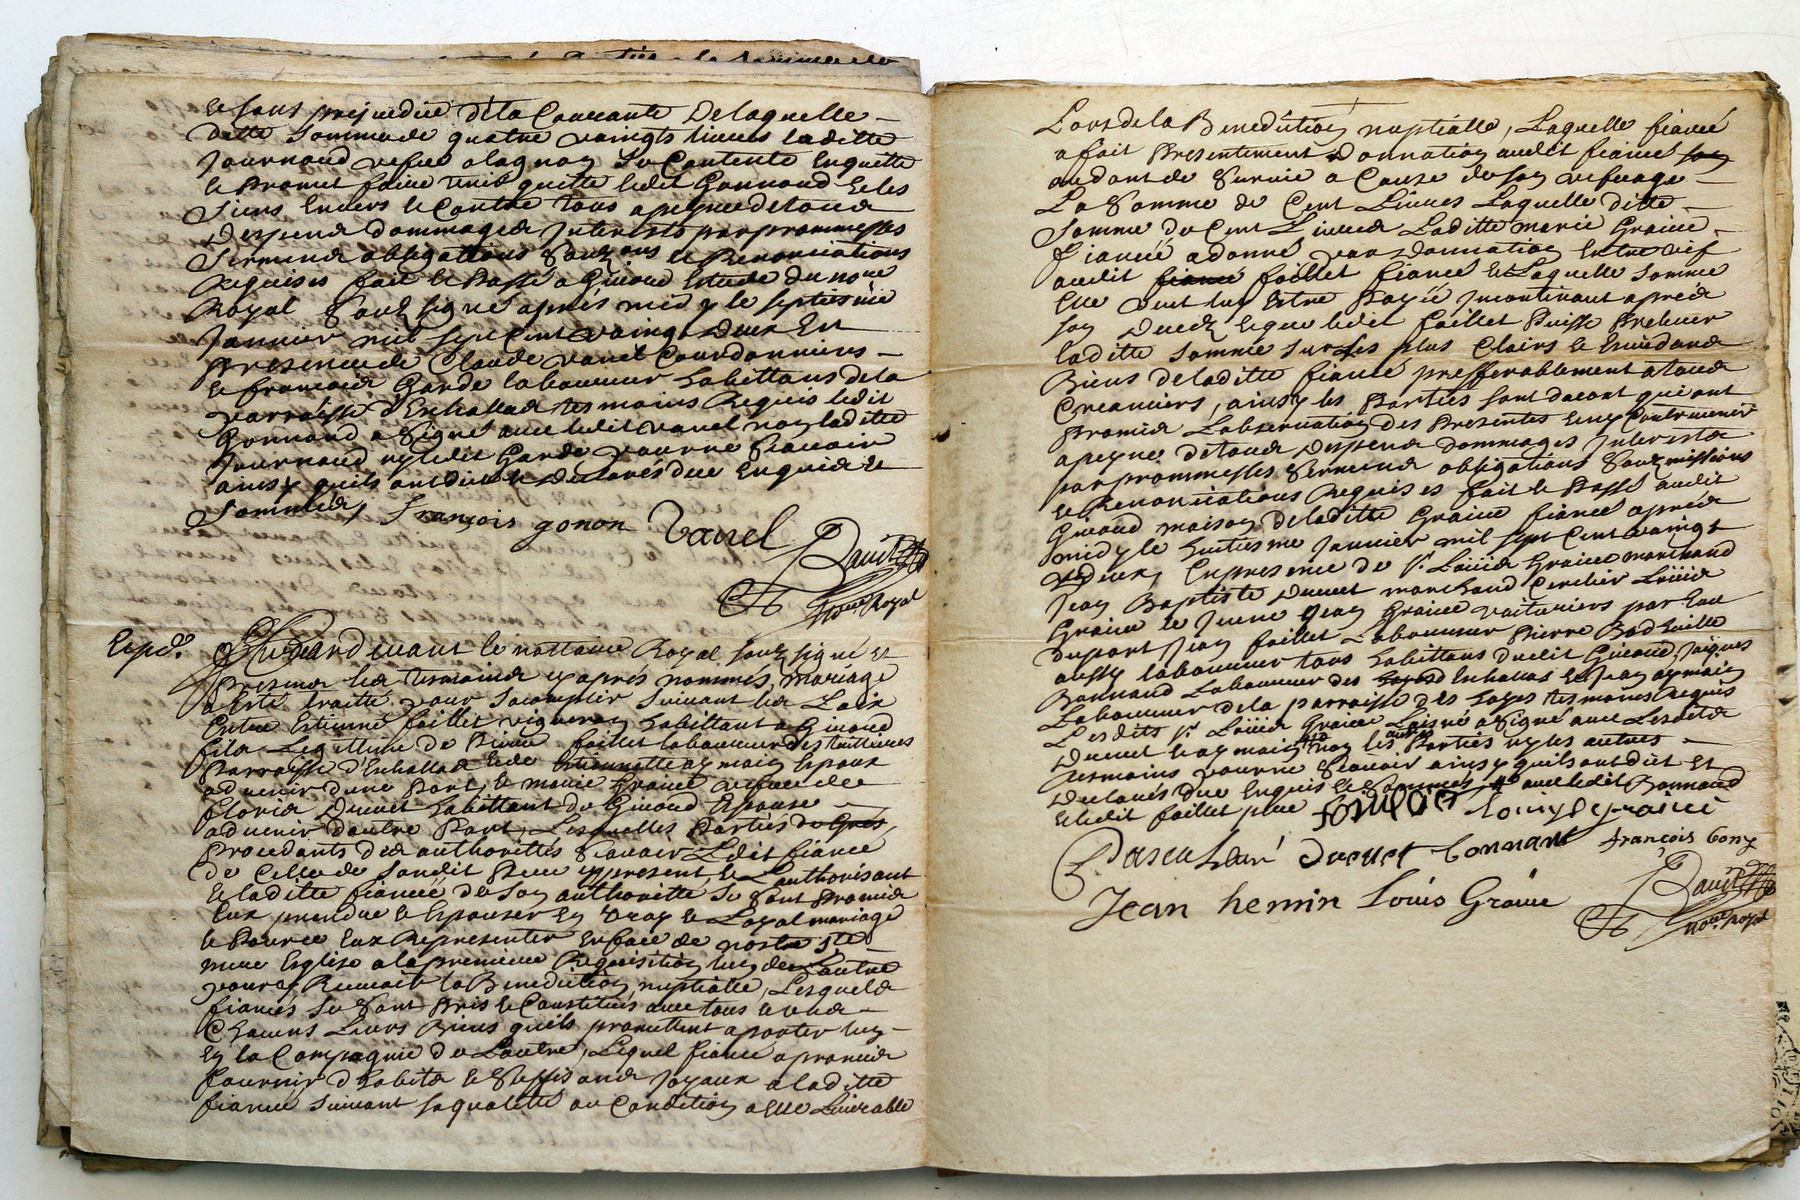 et sans prejudice de la Courante De laquelle
ditte Somme de quatre vaingts livres laditte
Journaud vefve alagnon Se Contente En quitte
et Promet faire tenir quitte ledit Gonnond et les
Siens Envers et Contre tous a peyne de tous
Despens dommages Interests par promesses
Serments obligations Souz.ons et Renonciations
Requises fait et Passé a Givord Estude du no.re
Royal Souz signé apres midy le septiesme
Janvier mil sept Cent vaingt deux En
Presence de Claude vanel Courdonniers
et francois Garde laboureur habittans de la
parroisse d'Echallas tesmoins Requis ledit
Gonnond a Signé avec ledit vanel non laditte
Journaud ny ledit Garde pour ne Scavoir
ainsy quils ont dit et declarés due Enquis et
Sommés
françois gonon Vanel
no.re Royal
Exped.
Pardevant le nottaire Royal souz signé et
Presens les tesmoins cy aprés nommés, mariage
a esté traitté pour Sacomplir Suivant les Loix
Entre Estienne faillet vigneron habittant a Givord
fils Legittime de Pierre faillet laboureur des
Parroisse d'Echallas et de Estiennette aymain Epoux
advenir d'une Part, et marie Graine vefve de
fleuris Duvet habittant de Givord Espouse
advenir d'autre Part, Lesquelles Parties
Procedants des authorittés Scavoir Ledit fiancé
de Celle de Sondit Pere cy present, et L'authorisant
et laditte fiancée de Son authoritté Se Sont Promis
Eux prendre et Espouser En vray et Loyal mariage
et Pource Eux Representer En face de nostre S.te
mere Esglise a la premiere Requisition lun de Lautre
pour y Recevoir la Benediction nuptialle, Lesquels
fiancés Se Sont Pris et Constitués avec tous et
Chacuns Leurs Biens quils promettent aporter lun
En la Compagnie de Lautre, Lequel fiancé a promis
fournir d'habits et Joyaux a laditte
fiancée Suivant sa qualitté ou Condition a Elle Livrable
Lors de la Benediction nuptialle, Laquelle fiancée
a fait Presentement Donnation audit fiancé
au dont de Survie a Cause de son vefvage
La Somme de Cent Livres Laquelle ditte
Somme de Cent Livres Laditte marie Graine
fiancée a donné par donnation Entre vif
audit fiancé faillet fiancé et Laquelle Somme
Elle veut luy Estre Payée Incontinant aprés
son Deceds Et que ledit faillet Puisse Prelever
laditte Somme sur Les plus Clairs et Evidans
Biens de laditte fiancée prefferablement a tous
Creanciers, ainsy les Parties Sont dacort qui ont
Promis Lobservation des Presentes Sans y Contrevenir
a peyne de tous Despens dommages Interests
par promesses Serments obligations Souzmissions
et Renonciations Requises fait et Passé audit
Givord maison de laditte Graine fiancée aprés
midy le huitiesme Janvier mil sept Cent vaingt
deux, En presence de s.r Louis Graine marchand
Jean Baptiste Duvet marchand Louis
Graine le Jeune Jean Graine voituriers par Eau
dupont Jean faillet Laboureur Pierre
aussy laboureur tous habittans dudit Givord, Jaques
Bonnand Laboureur des Echallas et Jean aymain
Laboureur de la parroisse des hayes tesmoins Requis
Lesdits s.r Louis Graine Laisné a Signé avec Lesdits
Duvet et aymain non les autres Parties ny les autres
tesmoins pour ne Scavoir ainsy quils ont dit et
Declarés due Enquis et Sommés avec ledit Bonnand
et ledit faillet pere louys graine
Duvet bonnant françois Gony
Jean hemin Louis Graine
no.re Royal